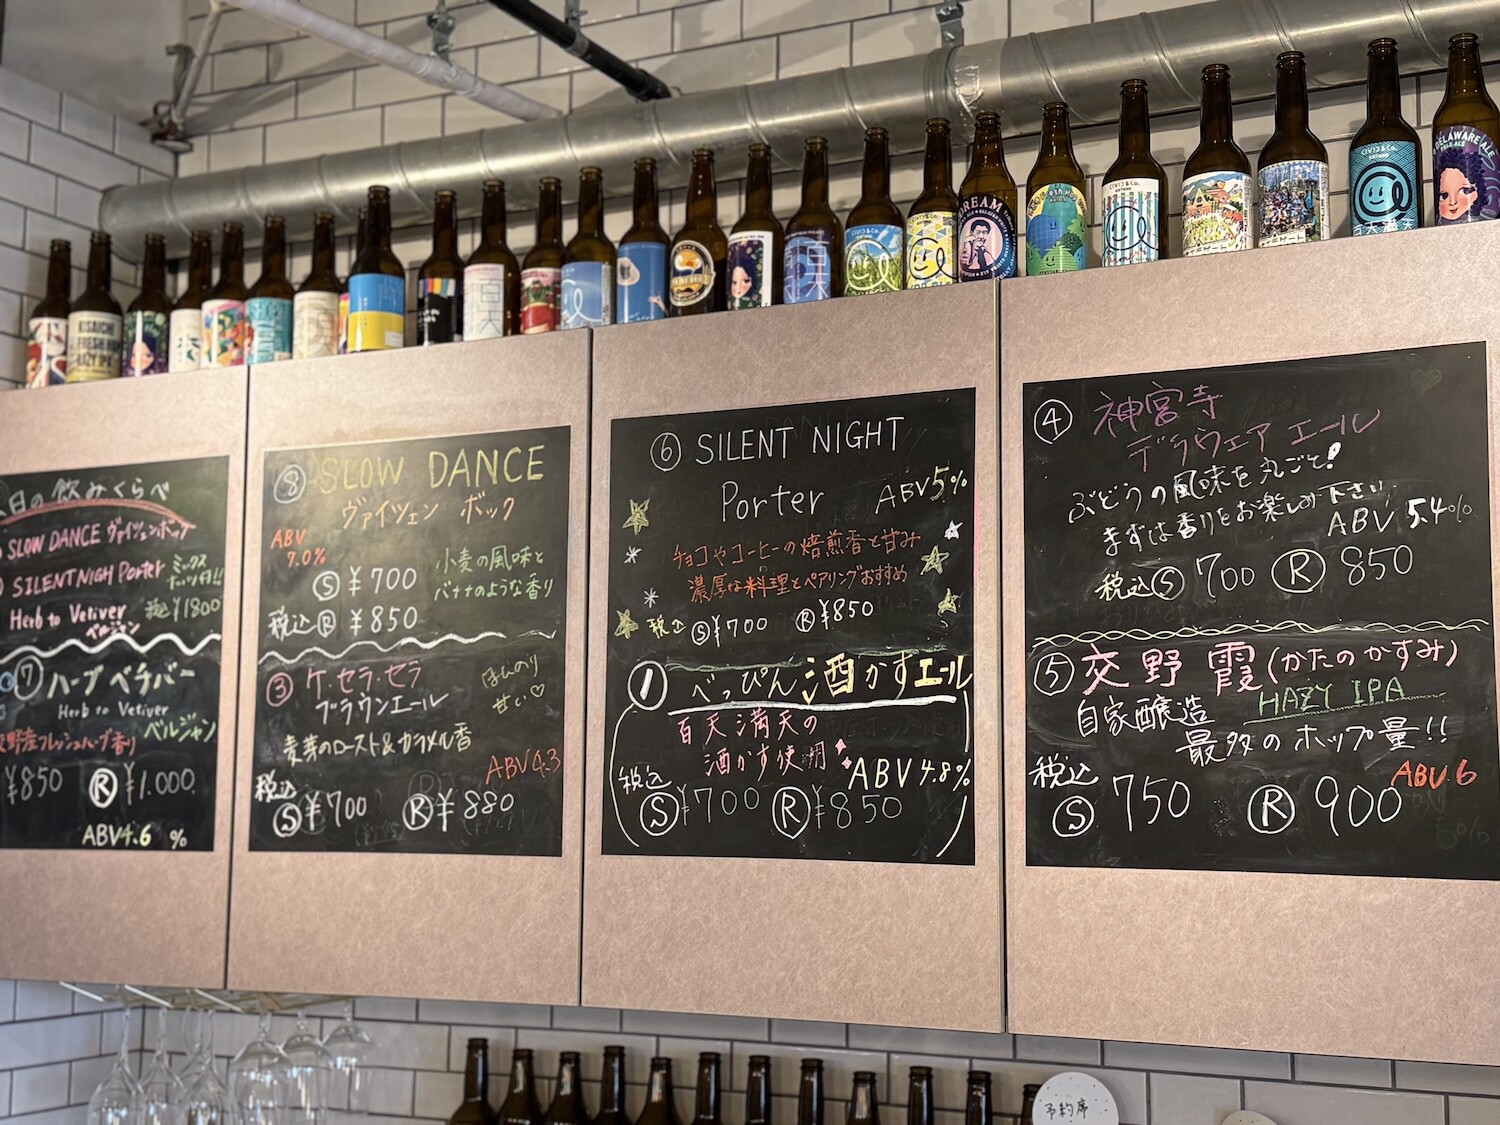 日の飲みくらべ
SLOW DANCE ヴァイツェンボック
SILENT NIGH Porter
ミックス
ナッツ付!!
Herb to Vetiver
税込 ¥1800
ベルジャン
⑦ ハーブ ベチバー
Herb to Vetiver
ベルジャン
野産フレッシュハーブ香り
¥850 Ⓡ ¥1.000
ABV4.6 %
⑧ SLOW DANCE
ヴァイツェン ボック
ABV
7.0%
小麦の風味と
バナナのような香り
Ⓢ ¥700
税込 Ⓡ ¥850
③ ケ・セラ・セラ
ブラウンエール
ほんのり
甘い♡
麦芽のロースト&カラメル香
ABV4.3
税込
Ⓢ ¥700 Ⓡ ¥880
⑥ SILENT NIGHT
Porter ABV5%
チョコやコーヒーの焙煎香と甘み
濃厚な料理とペアリングおすすめ
税込 Ⓢ¥700 Ⓡ¥850
① べっぴん酒かすエール
百天満天の
酒かす使用
ABV4.8%
税込
Ⓢ¥700 Ⓡ¥850
④ 神宮寺
デラウェア エール
ぶどうの風味を丸ごと!
まずは香りをお楽しみ下さい
ABV 5.4%
税込Ⓢ 700 Ⓡ 850
⑤ 交野 霞(かたのかすみ)
HAZY IPA
自家醸造
最多のホップ量!!
税込
ABV.6
Ⓢ 750 Ⓡ 900
DELAWARE ALE
PALE ALE
CIVIC & Co.
DREAM
FRESH HOP
HAZY IPA
予約席